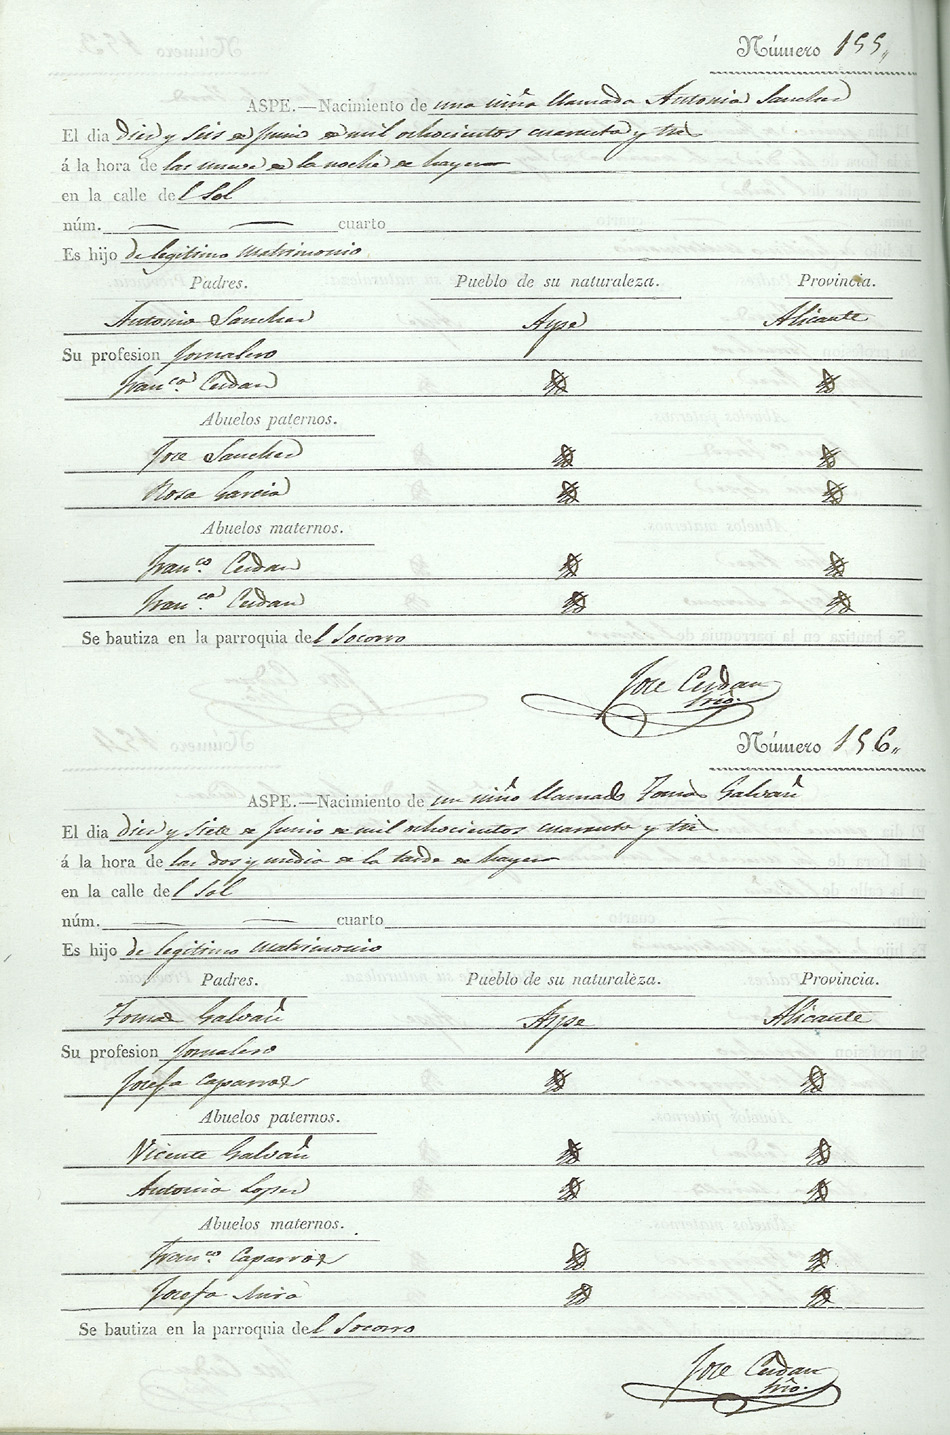 Número 155,,
ASPE.—Nacimiento de una niña llamada Antonia Sanchez
El dia diez y seis de Junio de mil ochocientos cuarenta y tres
á la hora de las nueve de la noche de hayer
en la calle del Sol
núm. — — cuarto
Es hijo de legitimo matrimonio
Padres. Pueblo de su naturaleza. Provincia.
Antonio Sanchez Aspe Alicante
Su profesion Jornalero
Franca. Cerdan
Abuelos paternos.
Jose Sanchez
Rosa Garcia
Abuelos maternos.
Franco. Cerdan
Franca. Cerdan
Se bautiza en la parroquia del Socorro
Jose Cerdan
Srio.
Número 156,,
ASPE.—Nacimiento de un niño llamado Tomas Galvañ
El dia diez y siete de Junio de mil ochocientos cuarenta y tres
á la hora de las dos y media de la tarde de hayer
en la calle del Sol
núm. — — cuarto
Es hijo de legitimo matrimonio
Padres. Pueblo de su naturaleza. Provincia.
Tomas Galvañ Aspe Alicante
Su profesion Jornalero
Josefa Caparros
Abuelos paternos.
Vicente Galvañ
Antonia Lopez
Abuelos maternos.
Franco. Caparros
Josefa Miró
Se bautiza en la parroquia del Socorro
Jose Cerdan
Srio.